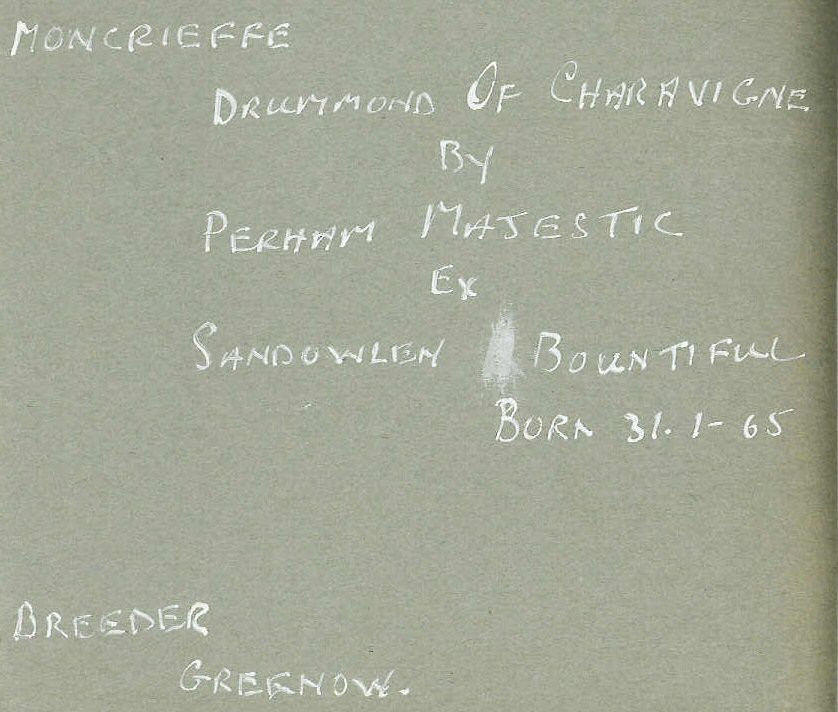 MONCRIEFFE
DRUMMOND OF CHARAVIGNE
BY
PERHAM MAJESTIC
EX
SANDOWLEN BOUNTIFUL
BORN 31.1-65
BREEDER
GREENOW.